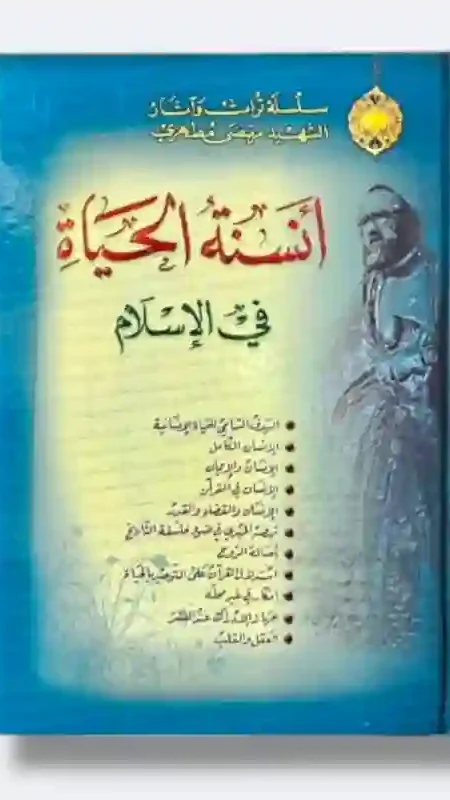 سلسلة تراث وآثار
الشهيد مرتضى مطهري
أنسنة الحياة
في الإسلام
الهدف السامي للحياة الإنسانية
الإنسان الكامل
الإنسان والإيمان
الإنسان في القرآن
الإنسان والقضاء والقدر
نهضة المهدي في ضوء فلسفة التاريخ
أصالة الروح
استدلال القرآن على التوحيد بالحياة
إنكار في غير محله
جهاز الإدراك عند البشر
العقل والقلب